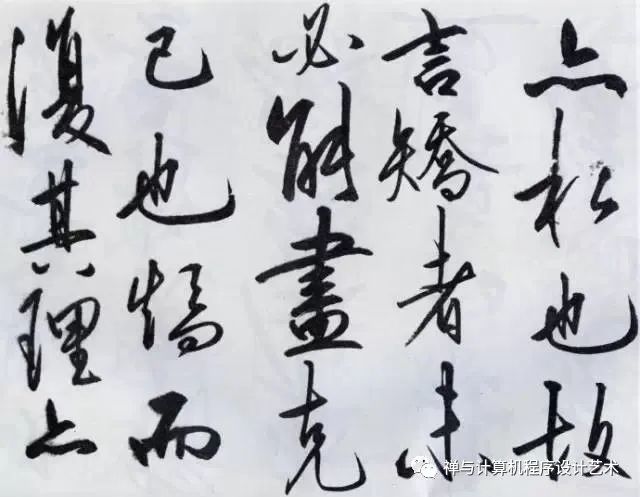 亦私也故
言矯者未
必能盡克
己也矯而
復其理亦
禅与计算机程序设计艺术